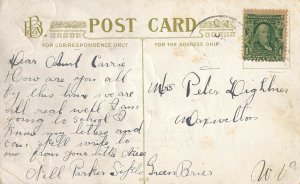 POST CARD
FOR CORRESPONDENCE ONLY
FOR THE ADDRESS ONLY
Dear Aunt Carrie
How are you all
by this time we are
all real well I am
going to school I
know my letters and
can spell write to
me from your little
Nell Parker
Green
Mrs Peter Lightner
W Va